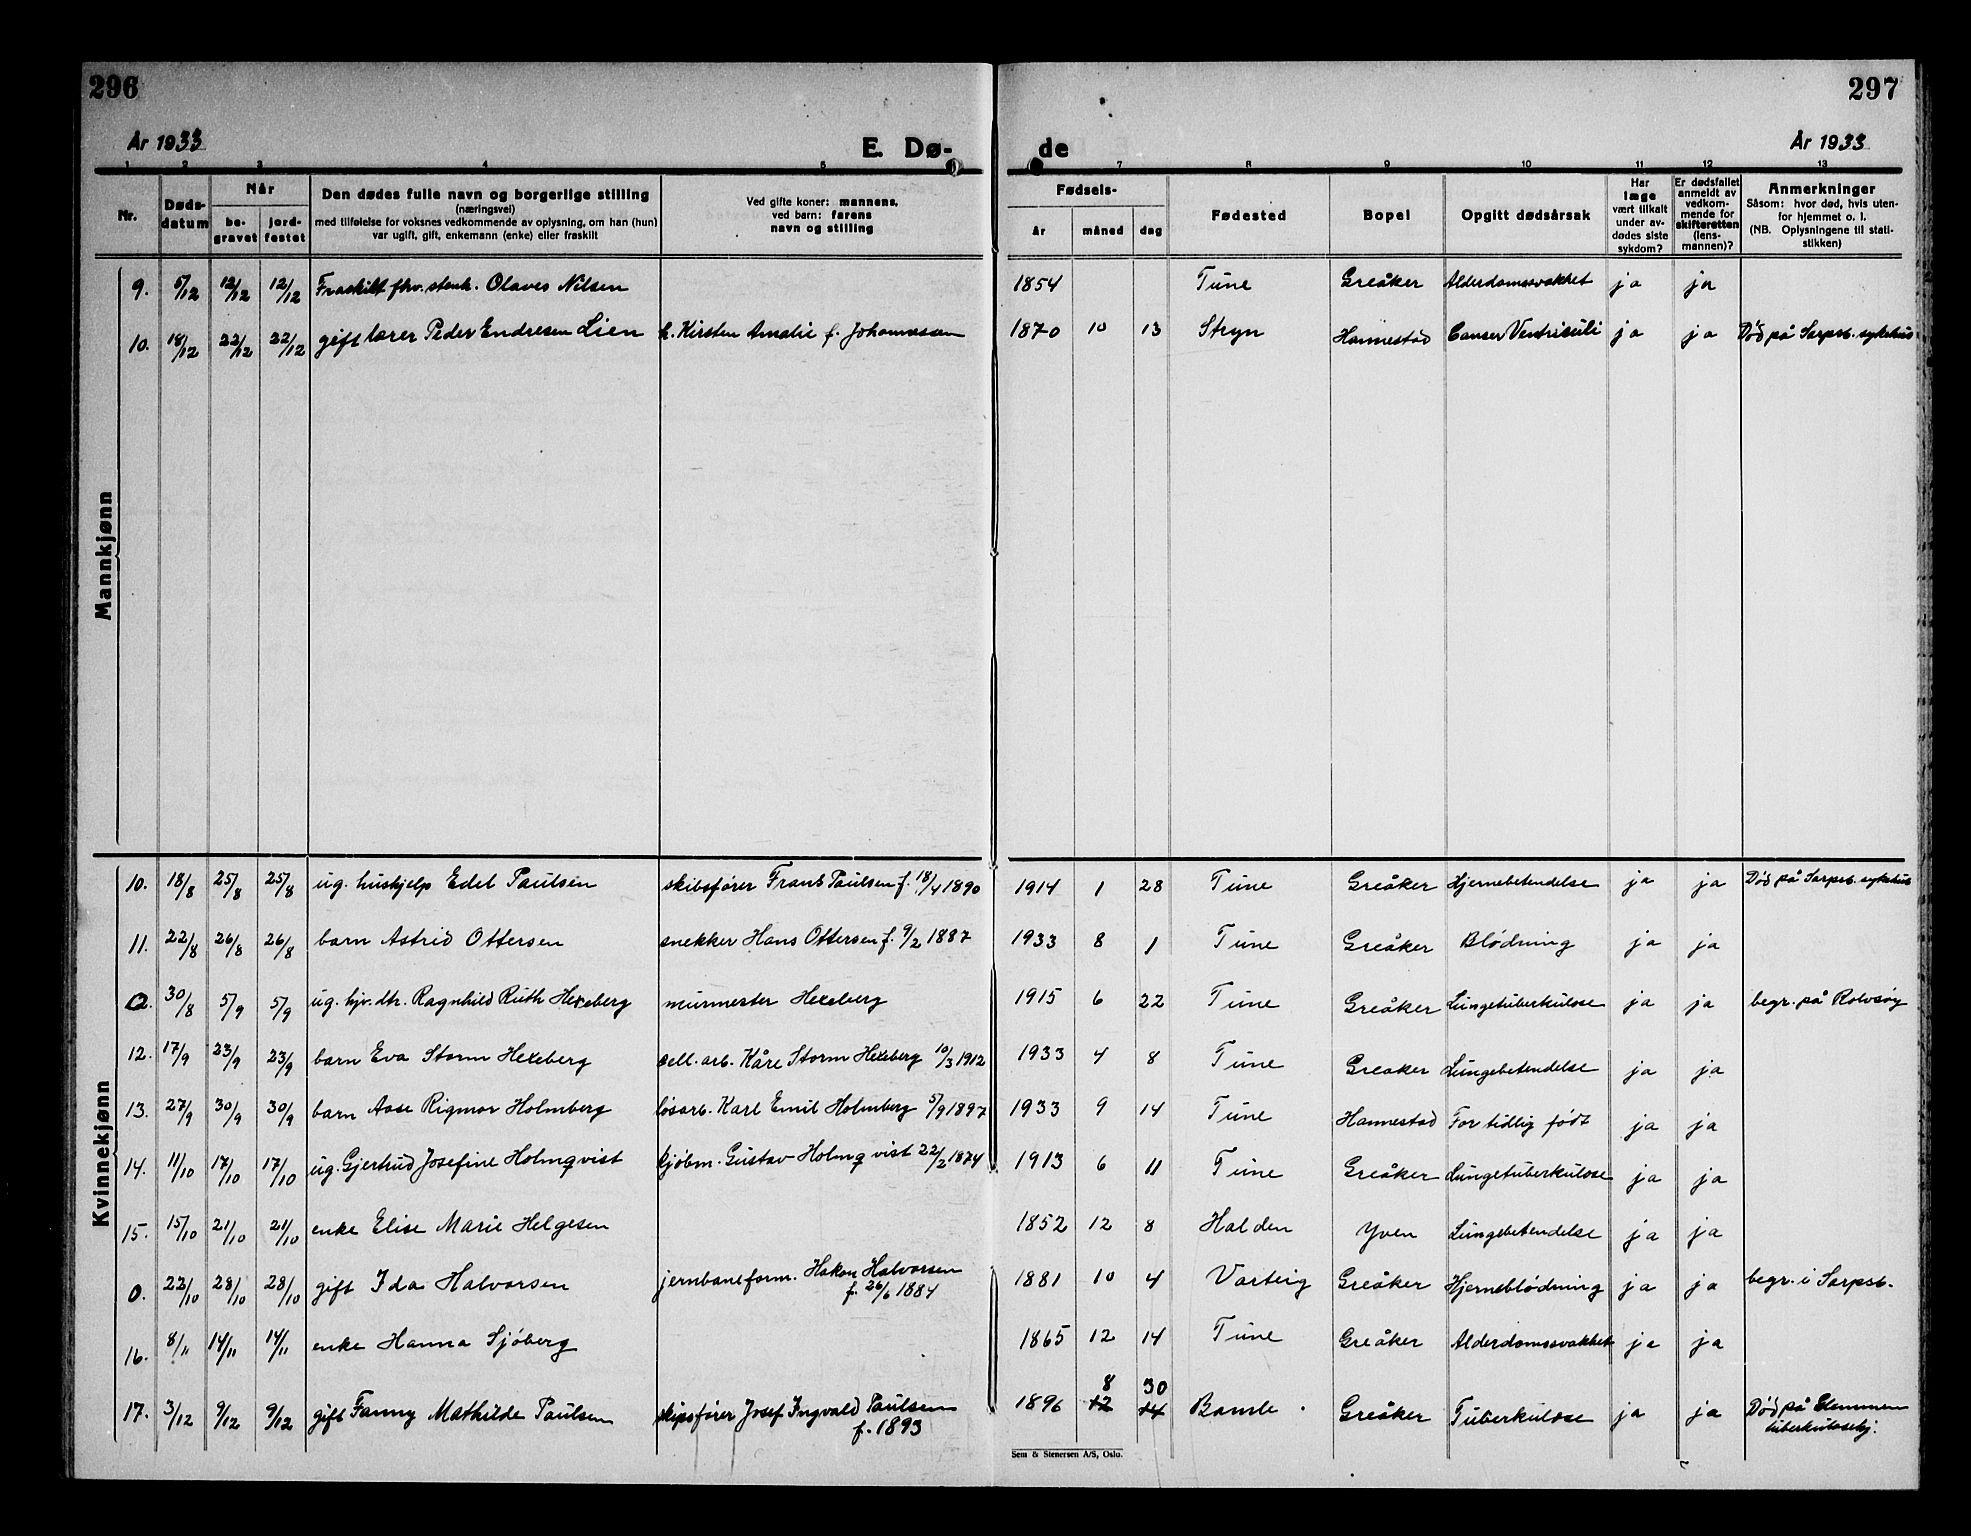 296
297
År 1933
E. Dø-
de
År 1933
1 2 3 4 5 7 8 9 10 11 12 13
Nr.
Døds-
datum
Når
be-
gravet
jord-
festet
Den dødes fulle navn og borgerlige stilling
(næringsvei)
med tilføielse for voksnes vedkommende av oplysning, om han (hun)
var ugift, gift, enkemann (enke) eller fraskilt
Ved gifte koner: mannens,
ved barn: farens
navn og stilling
Fødsels-
år
måned
dag
Fødested
Bopel
Opgitt dødsårsak
Har
læge
vært tilkalt
under av-
dødes siste
sykdom?
Er dødsfallet
anmeldt av
vedkom-
mende for
skifteretten
(lens-
mannen)?
Anmerkninger
Såsom: hvor død, hvis uten-
for hjemmet o. l.
(NB. Oplysningene til stati-
stikken)
Mannkjønn
9. 5/12 12/12 12/12 Fraskilt fhv. stenh. Olaves Nilsen 1854 Tune Greåker Alderdomssvakhet ja ja
10. 18/12 22/12 22/12 gift lærer Peder Endresen Lien h. Kirsten Amalie f. Johannessen 1870 10 13 Stryn Hannestad Canser Ventriculi ja ja Død på Sarpsb. sykehus
Kvinnekjønn
10. 18/8 25/8 25/8 ug. hushjelp Edel Paulsen skibsfører Frans Paulsen f. 18/4 1890 1914 1 28 Tune Greåker Hjernebetendelse ja ja Død på Sarpsb. sykehus
11. 22/8 26/8 26/8 barn Astrid Ottersen snekker Hans Ottersen f. 9/2 1887 1933 8 1 Tune Greåker Blødning ja ja
0. 30/8 5/9 5/9 ug. hjv. dtr. Ragnhild Ruth Hexeberg murmester Hexeberg 1915 6 22 Tune Greåker Lungetuberkulose ja ja begr. på Rolvsøy
12. 17/9 23/9 23/9 barn Eva Storm Hexeberg cell. arb. Kåre Storm Hexeberg 10/3 1912 1933 4 8 Tune Greåker Lungebetendelse ja ja
13. 27/9 30/9 30/9 barn Aase Rigmor Holmberg løsarb. Karl Emil Holmberg 5/9 1897 1933 9 14 Tune Hannestad For tidlig født ja ja
14. 11/10 17/10 17/10 ug. Gjertrud Josefine Holmqvist kjøbm. Gustav Holmqvist 22/2 1874 1913 6 11 Tune Greåker Lungetuberkulose ja ja
15. 15/10 21/10 21/10 enke Elise Marie Helgesen 1852 12 8 Halden Yven Lungebetendelse ja ja
0. 22/10 28/10 28/10 gift Ida Halvorsen jernbaneform. Hakon Halvorsen 1881 10 4 Varteig Greåker Hjerneblødning ja ja begr. i Sarpsb.
f. 26/6 1884
16. 8/11 14/11 14/11 enke Hanna Sjøberg 1865 12 14 Tune Greåker Alderdomssvakhet ja ja
8 30
17. 3/12 9/12 9/12 gift Fanny Mathilde Paulsen skipsfører Josef Ingvald Paulsen 1896 12 14 Bamle Greåker Tuberkulose ja ja Død på Glemmen
f. 1893 tuberkulosehj.
Sem & Stenersen A/S, Oslo.